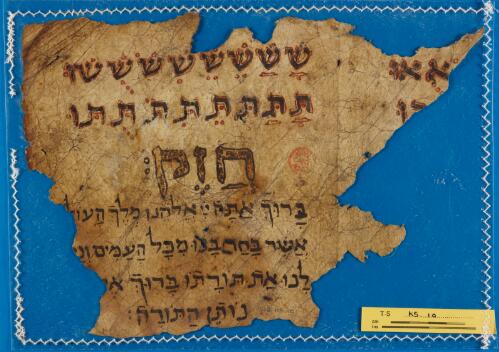 א או
ש ש ש ש ש ש ש שו
ת ת ת ת ת ת ת תו
חֲזַק:
בָּרוּךְ אַתָּה יי אלהינו מֶלֶךְ הָעול
אֲשֶׁר בָּחַר בָּנוּ מִכָּל הָעַמִּים ונ
לָנוּ אֶת תּוֹרָתוֹ בָּרוּךְ א
נוֹתֵן הַתּוֹרָה:
T-S K5.10